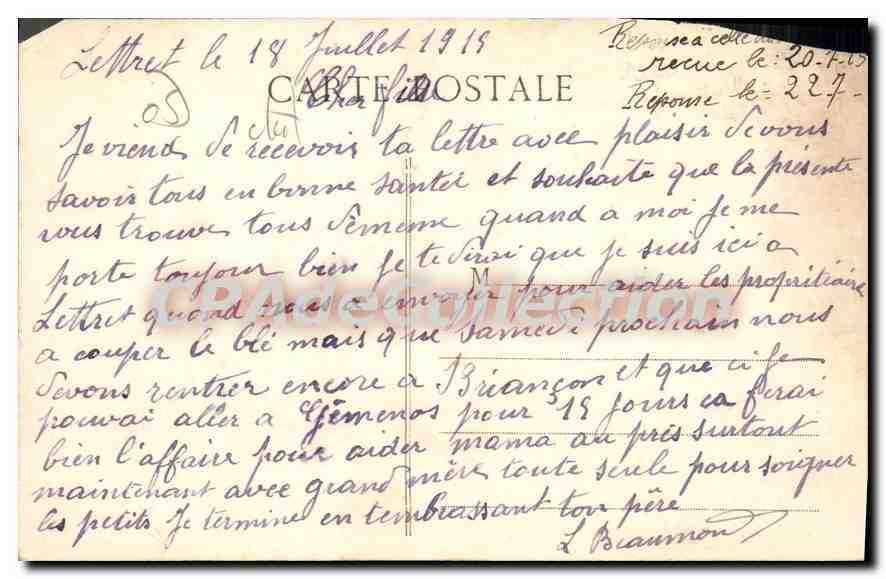 Lettret le 18 Juillet 1915
Reponse a celle
recue le: 20-7-15
Reponse le = 22 7-
CARTE POSTALE
Cher fils
Je viend de recevoir ta lettre avec plaisir de vous
savoir tous en bonne santée et souhaite que la présente
vous trouve tous de même quand a moi Je me
porte toujour bien Je te dirai que je suis ici a
M
Lettret quand nous a envoyer pour aider les propriétiaire
a couper le blé mais que samedi prochain nous
devons rentrer encore a Briançon et que ci Je
pouvai aller a Gémenos pour 15 jours ca ferai
bien l'affaire pour aider mama au prés surtout
maintenant avec grand mère toute seule pour soigner
les petits Je termine en tembrassant ton père
L Beaumond
CPAdeCollection